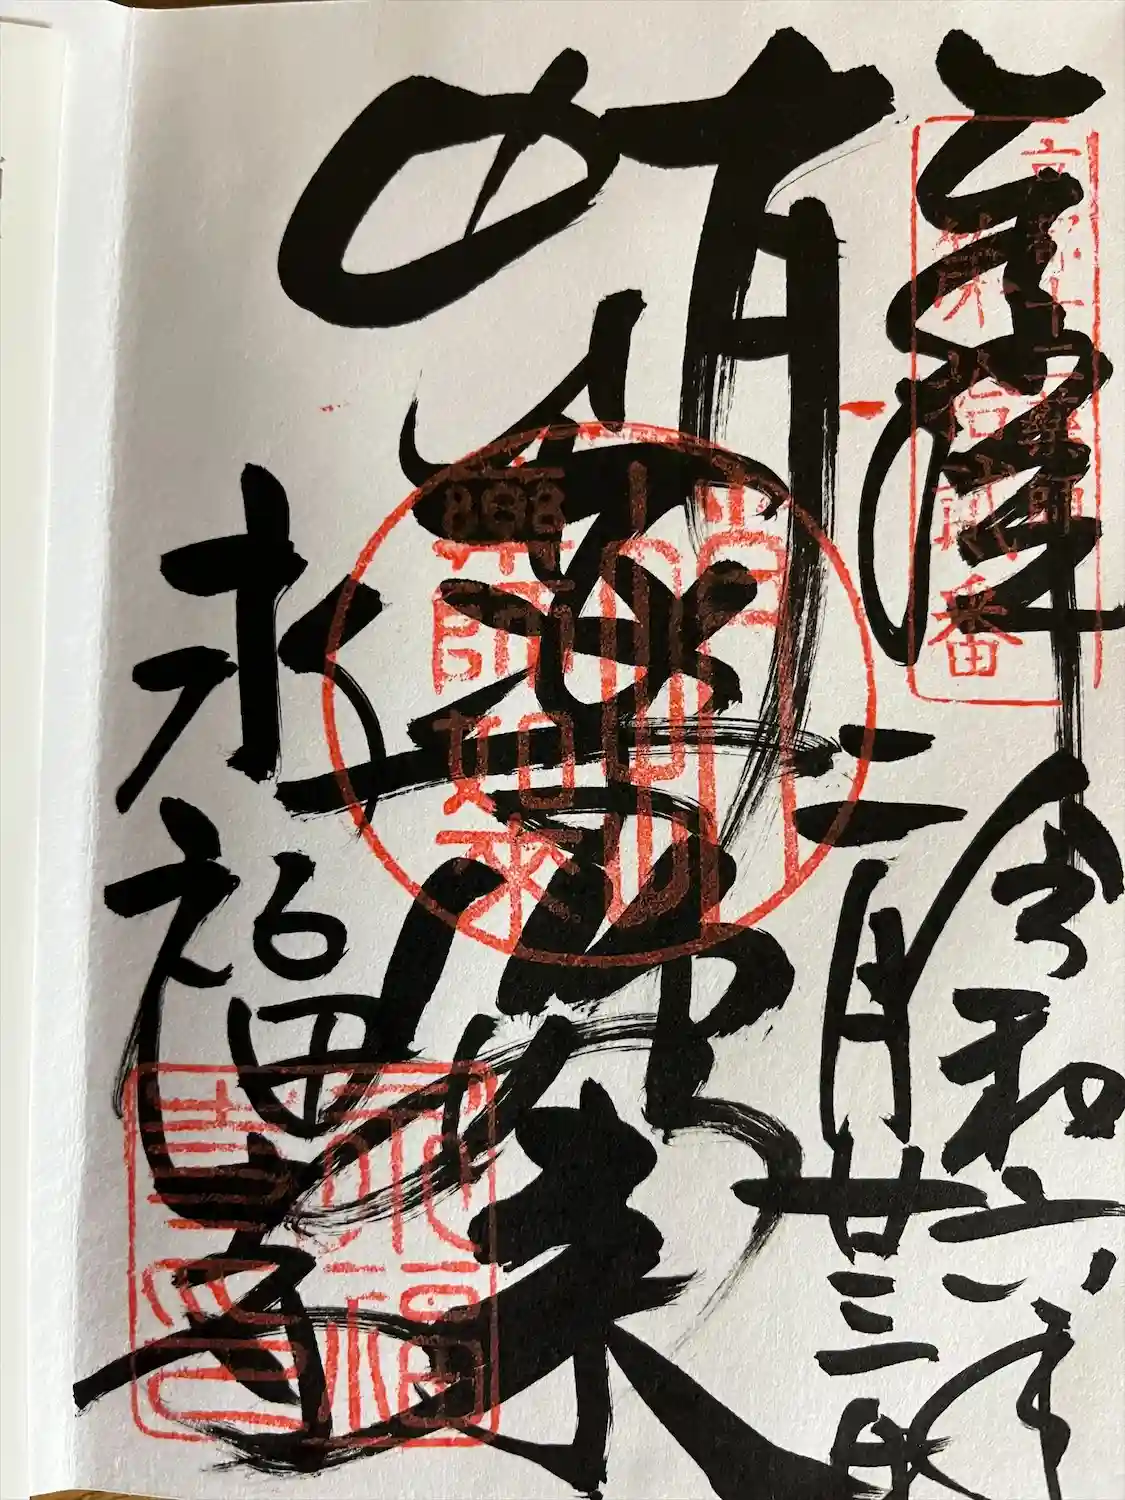 奉拝
令和六年
二月廿三日
蛸薬師如来
永福寺
京都十二薬師
第拾弐番
薬師如来
永福